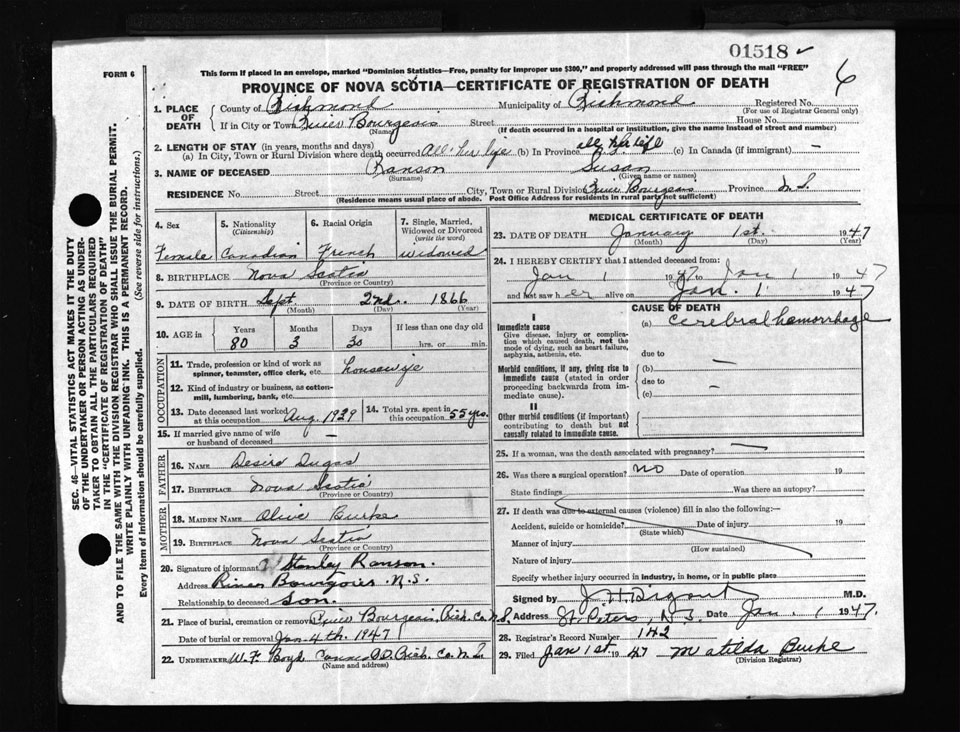 01518 ✓
6
FORM 6
This form if placed in an envelope, marked "Dominion Statistics—Free, penalty for improper use $300," and properly addressed will pass through the mail "FREE"
PROVINCE OF NOVA SCOTIA—CERTIFICATE OF REGISTRATION OF DEATH
1. PLACE OF DEATH County of Richmond Municipality of Richmond Registered No.
(For use of Registrar General only)
If in City or Town River Bourgeois Street House No.
(Name) (If death occurred in a hospital or institution, give the name instead of street and number)
2. LENGTH OF STAY (in years, months and days)
(a) In City, Town or Rural Division where death occurred All her life (b) In Province all her life (c) In Canada (if immigrant) —
3. NAME OF DECEASED Ranson Susan
(Surname) (Given name or names)
RESIDENCE No. Street City, Town or Rural Division River Bourgeois Province N.S.
(Residence means usual place of abode. Post Office Address for residents in rural parts not sufficient)
SEC. 46—VITAL STATISTICS ACT MAKES IT THE DUTY
OF THE UNDERTAKER OR PERSON ACTING AS UNDER-
TAKER TO OBTAIN ALL THE PARTICULARS REQUIRED
IN THE "CERTIFICATE OF REGISTRATION OF DEATH"
AND TO FILE THE SAME WITH THE DIVISION REGISTRAR WHO SHALL ISSUE THE BURIAL PERMIT.
WRITE PLAINLY WITH UNFADING INK. THIS IS A PERMANENT RECORD.
Every item of information should be carefully supplied. (See reverse side for instructions.)
4. Sex 5. Nationality (Citizenship) 6. Racial Origin 7. Single, Married, Widowed or Divorced (write the word)
Female Canadian French Widowed
8. BIRTHPLACE Nova Scotia
(Province or Country)
9. DATE OF BIRTH Sept. 2nd. 1866
(Month) (Day) (Year)
10. AGE in Years Months Days If less than one day old
80 3 30 hrs. or min.
OCCUPATION
11. Trade, profession or kind of work as
spinner, teamster, office clerk, etc. housewife
12. Kind of industry or business, as cotton-
mill, lumbering, bank, etc.
13. Date deceased last worked at this occupation Aug. 1929 14. Total yrs. spent in this occupation 55 yrs.
15. If married give name of wife
or husband of deceased —
FATHER
16. NAME Desire Dugas
17. BIRTHPLACE Nova Scotia
(Province or Country)
MOTHER
18. MAIDEN NAME Olive Burke
19. BIRTHPLACE Nova Scotia
(Province or Country)
20. Signature of informant Stanley Ranson.
Address River Bourgois. N.S.
Relationship to deceased Son.
21. Place of burial, cremation or removal River Bourgeois, Rich. Co. N.S.
Date of burial or removal Jan. 4th. 1947
22. UNDERTAKER W. F. Boyd Rich. Co. N.S.
(Name and address)
MEDICAL CERTIFICATE OF DEATH
23. DATE OF DEATH January 1st. 1947
(Month) (Day) (Year)
24. I HEREBY CERTIFY that I attended deceased from:
Jan 1 1947 to Jan 1 1947
and last saw her alive on Jan. 1 1947
CAUSE OF DEATH
I
Immediate cause (a) cerebral hemorrhage
Give disease, injury or complica-
tion which caused death, not the
mode of dying, such as heart failure,
asphyxia, asthenia, etc.
due to —
Morbid conditions, if any, giving rise to
immediate cause (stated in order
proceeding backwards from im-
mediate cause).
(b)
due to —
(c)
II
Other morbid conditions (if important)
contributing to death but not
causally related to immediate cause.
25. If a woman, was the death associated with pregnancy? —
26. Was there a surgical operation? no Date of operation 19
State findings Was there an autopsy?
27. If death was due to external causes (violence) fill in also the following:—
Accident, suicide or homicide? Date of injury 19
(State which)
Manner of injury
(How sustained)
Nature of injury
Specify whether injury occurred in industry, in home, or in public place
Signed by M.D.
Address St. Peters, N.S. Date Jan. 1 1947.
28. Registrar's Record Number 142
29. Filed Jan 1st. 1947 Matilda Burke
(Division Registrar)